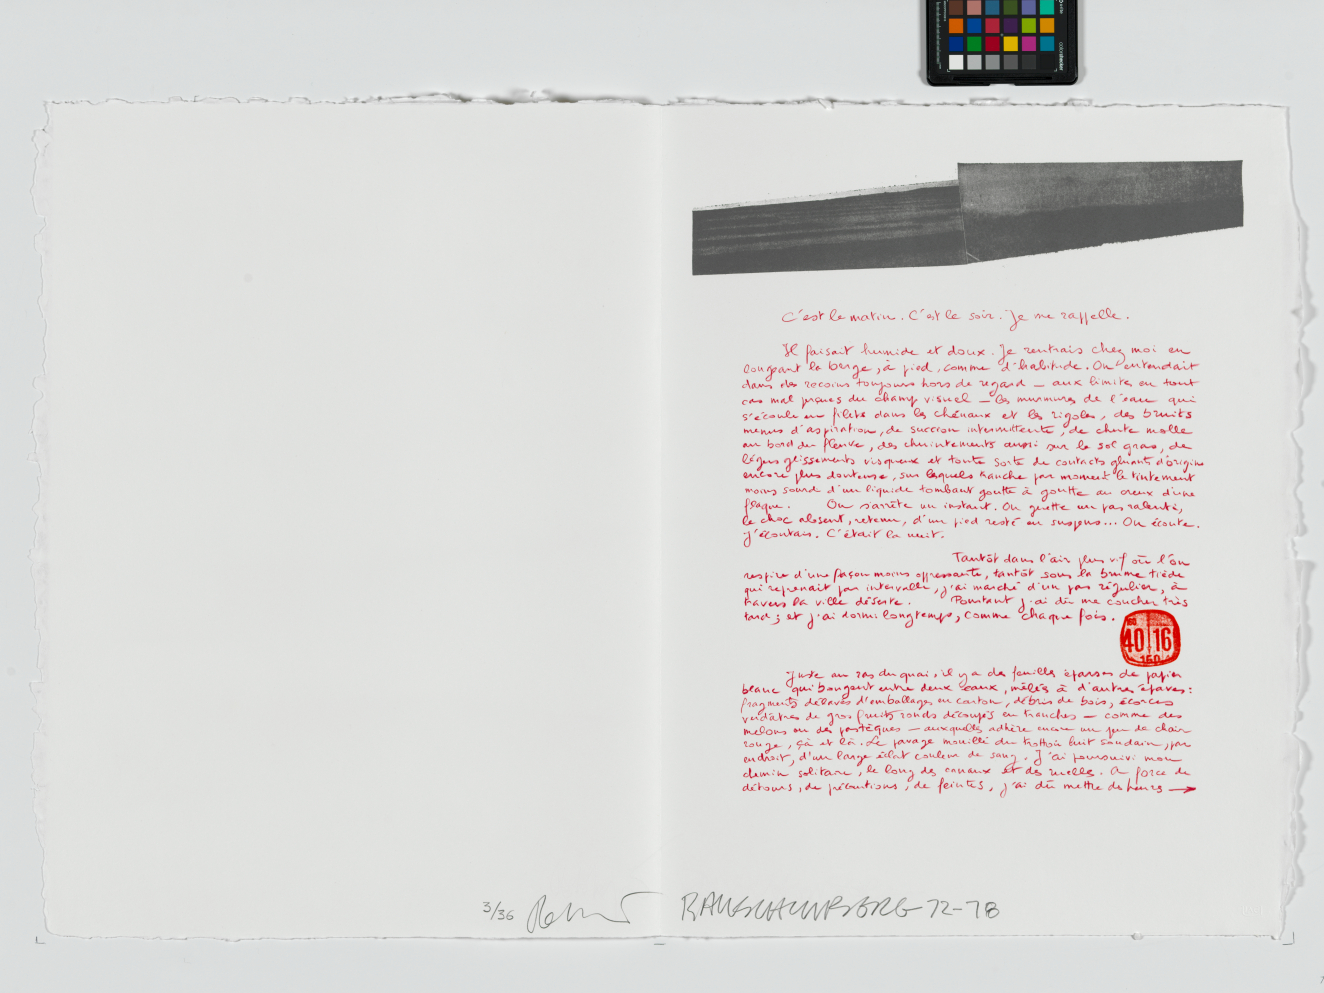 C'est le matin. C'est le soir. Je me rappelle.
Il faisait humide et doux. Je rentrais chez moi en
longeant la berge, à pied, comme d'habitude. On entendait
dans des recoins toujours hors de regard — aux limites en tout
cas mal perçues du champ visuel — les murmures de l'eau qui
s'écoule en filets dans les chéneaux et les rigoles, des bruits
menus d'aspiration, de succion intermittente, de chute molle
au bord du fleuve, des chuintements aussi sur le sol gras, de
légers glissements visqueux et toute sorte de contacts gluants d'origine
encore plus douteuse, sur lesquels tranche par moment le tintement
moins sourd d'un liquide tombant goutte à goutte au creux d'une
flaque. On s'arrête un instant. On guette un pas ralenti,
le choc absent, retenu, d'un pied resté en suspens... On écoute.
J'écoutais. C'était la nuit.
Tantôt dans l'air plus vif où l'on
respire d'une façon moins oppressante, tantôt sous la brume tiède
qui reprenait par intervalle, j'ai marché d'un pas régulier, à
travers la ville déserte. Pourtant j'ai dû me coucher très
tard; et j'ai dormi longtemps, comme chaque fois.
40 16
150
Juste au ras du quai, il y a des feuilles éparses de papier
blanc qui bougent entre deux eaux, mêlés à d'autres épaves:
fragments délavés d'emballages en carton, débris de bois, écorces
verdâtres de gros fruits ronds découpés en tranches — comme des
melons ou des pastèques — auxquelles adhère encore un peu de chair
rouge, çà et là. Le pavage mouillé du trottoir luit soudain, par
endroit, d'un large éclat couleur de sang. J'ai poursuivi mon
chemin solitaire, le long des canaux et des ruelles. A force de
détours, de précautions, de feintes, j'ai dû mettre des heures →
3/36 RAUSCHENBERG 72-78